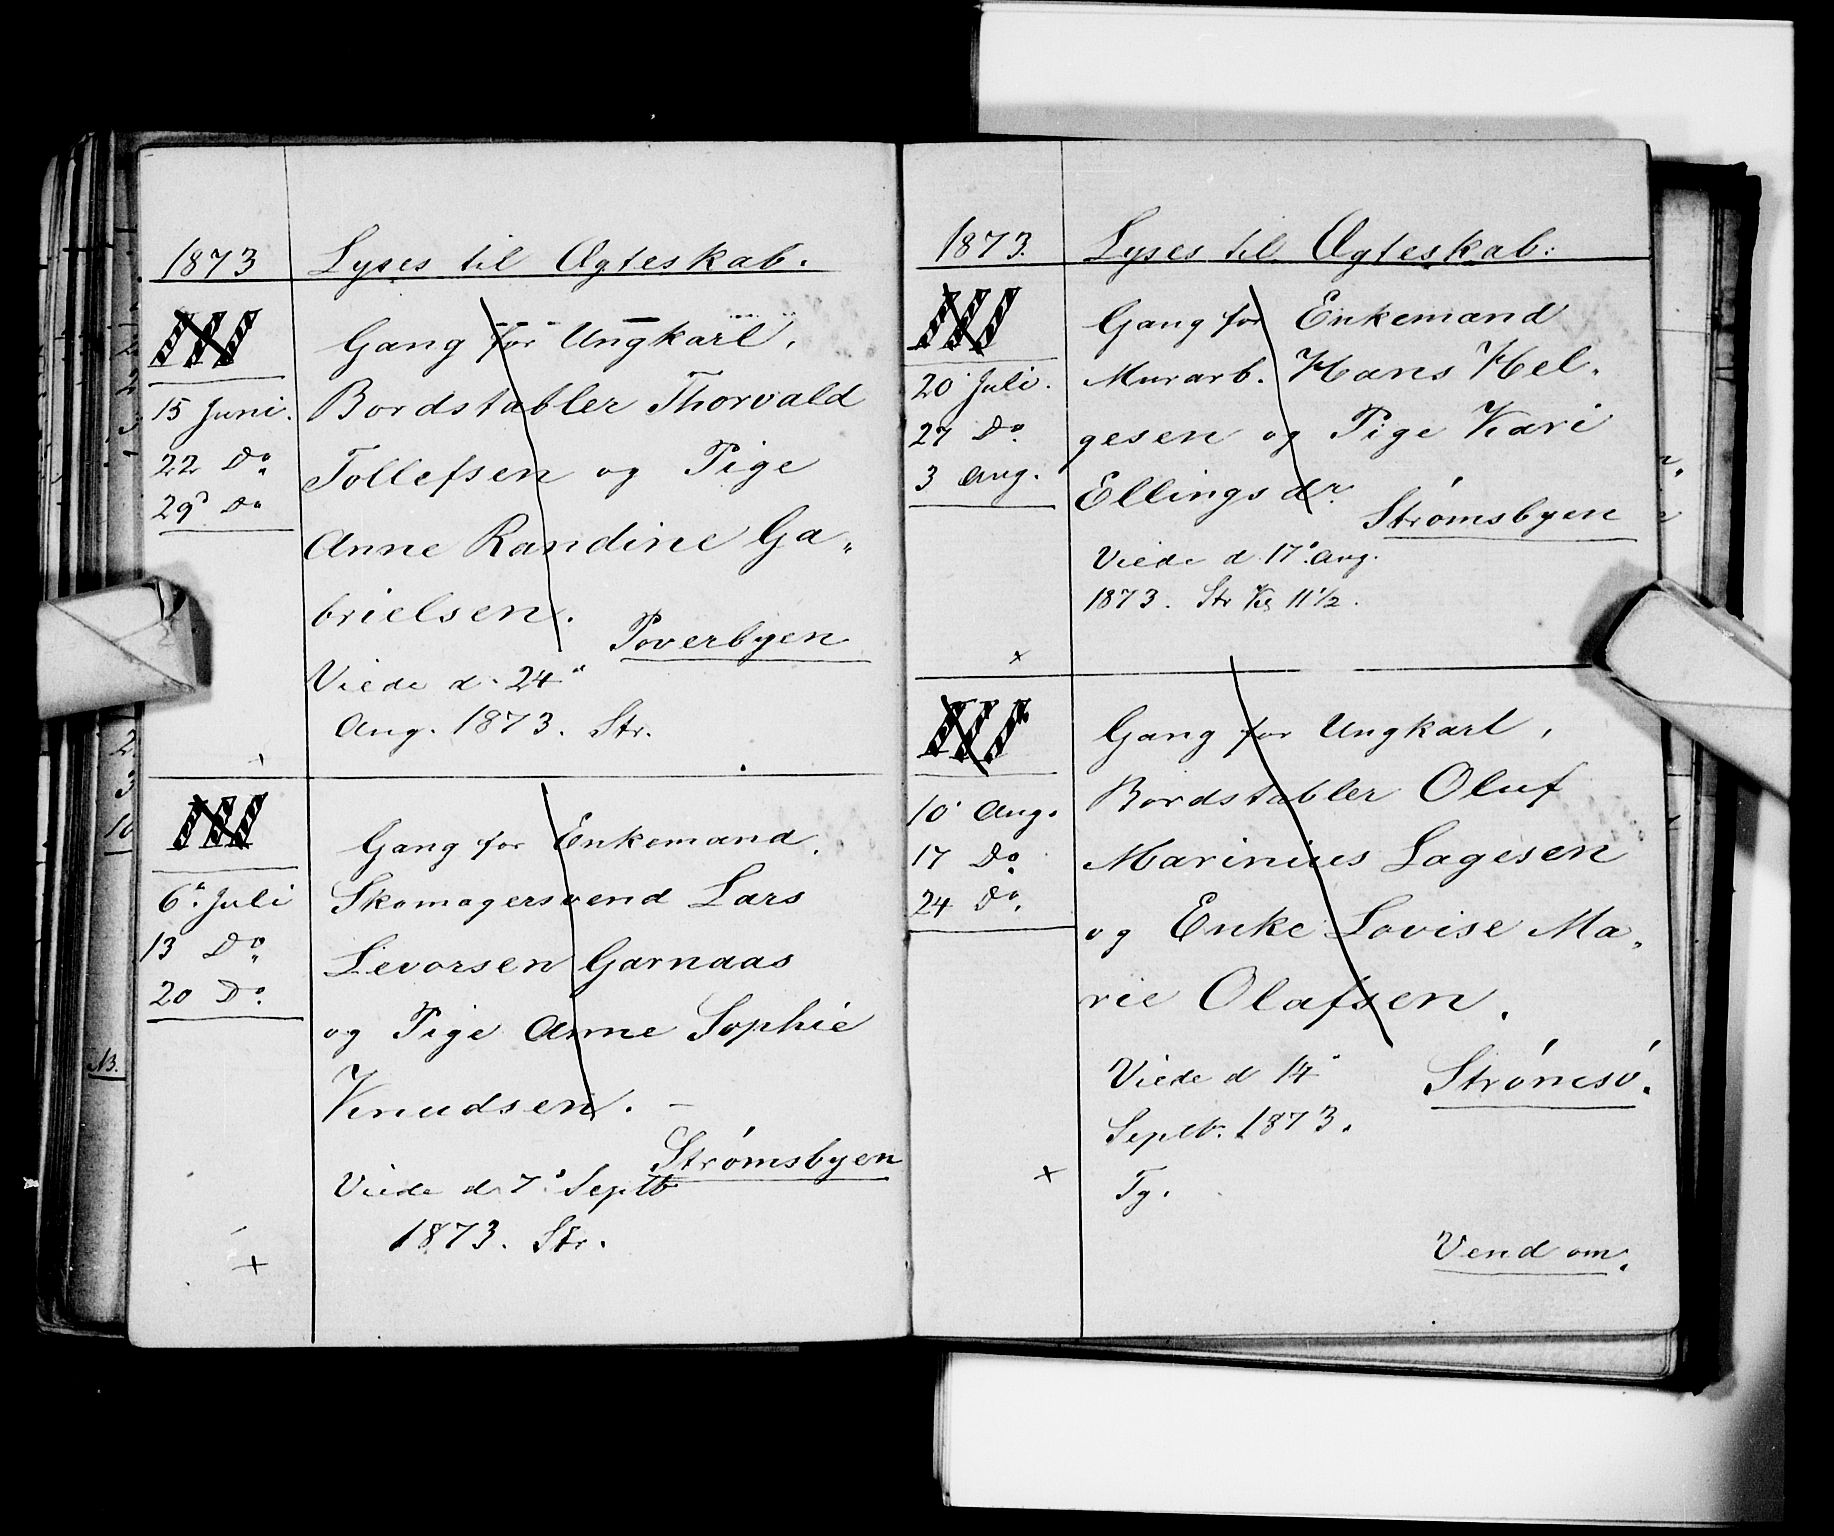 1873 Lyses til Ægteskab.
III
Gang for Ungkarl,
15 Juni. Bordstabler Thorvald
22 Do Tollefsen og Pige
29 Do
Anne Randine Ga„
brielsen.
Poverbyen
Viede d. 24
Aug. 1873. Str.
+
III
Gang for Enkemand,
6. Juli Skomagersvend Lars
13 Do Levorsen Garnaas
20 Do.
og Pige Anne Sophie
Knudsen. –
Strømsbyen
Viede d. 7. Septb
1873. Str.
+
1873. Lyses til Ægteskab:
III
Gang for Enkemand
20 Juli. Murarb. Hans Hel„
27 Do. gesen og Pige Kari
3 Aug. Ellingsdr.
Strømsbyen
Viede d. 17. Aug.
1873. Str Kl 11½.
+
III
Gang for Ungkarl,
10 Aug. Bordstabler Oluf
17 Do. Marinius Lagesen
24 Do. og Enke Lovise Ma„
rie Olafsen.
Viede d 14 Strømsø.
Septb. 1873.
+ Tg.
Vend om.
2
3
10
N3.